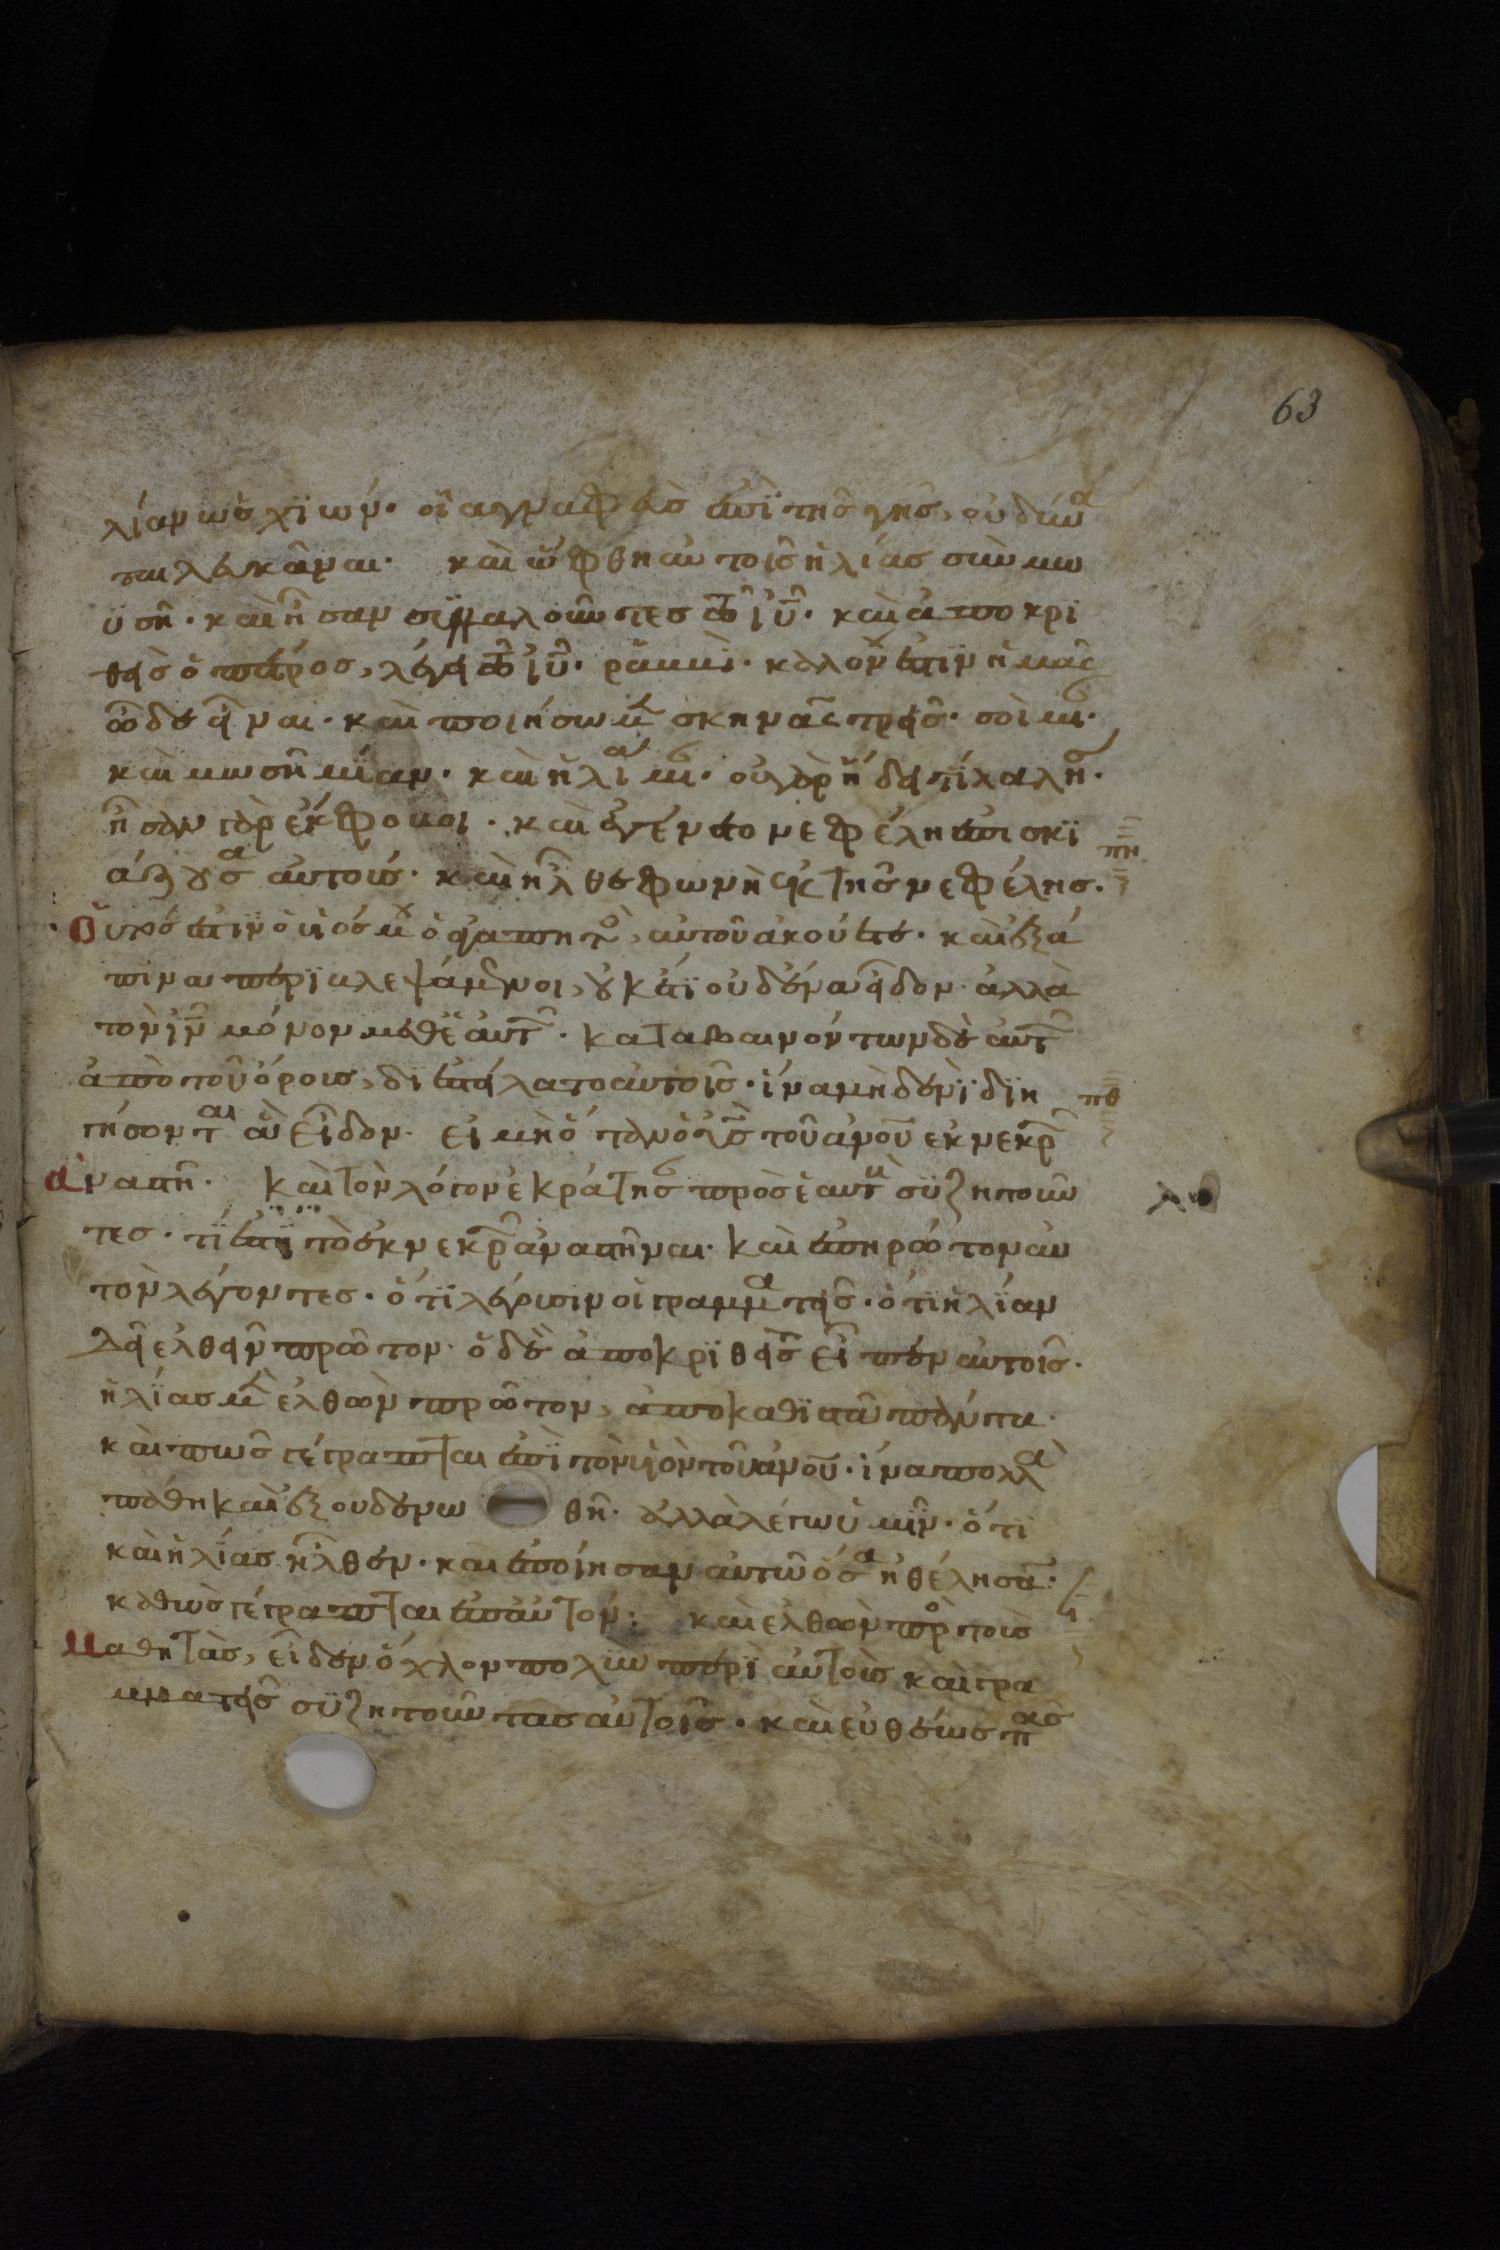 63
λίαν ὡς χϊών· οἷα γναφεὺς ἐπὶ τῆς γῆς, οὐ δύνα
ται λευκᾶναι· καὶ ὤφθη αὐτοῖς ἠλίας σὺν μω
ϋσῆ· καὶ ἦσαν συλλαλοῦντες τῶ ἰῦ· καὶ ἀποκρι
θεὶς ὁ πέτρος, λέγει τῶ ἰῦ· ῥαββὶ· καλόν ἐστιν ἡμᾶς
ὧδε εἶναι· καὶ ποιήσωμεν σκηνὰς τρεῖς· σοὶ μίαν·
καὶ μωσῆ μίαν· καὶ ἠλία μίαν· οὐ γὰρ ἤδει τί λαλήσει·
ἦσαν γὰρ ἔκφοβοι· καὶ ἐγένετο νεφέλη ἐπισκι
άζουσα αὐτοῖς· καὶ ἦλθε φωνὴ ἐκ τῆς νεφέλης·
πη
Οὗτός ἐστιν ὁ υἱός μου ὁ ἀγαπητός, αὐτοῦ ἀκούετε· καὶ ἐξά
πινα περιβλεψάμενοι, οὐκέτι οὐδένα εἶδον ἀλλὰ
τὸν ἰν μόνον μεθ' ἑαυτῶν· καταβαινόντων δὲ αὐτῶν
ἀπὸ τοῦ ὄρους, διεστείλατο αὐτοῖς· ἵνα μηδενὶ διη
πθ
γήσονται ἃ εἶδον· εἰ μὴ ὅταν ὁ υἱὸς τοῦ ἀνου ἐκ νεκρῶν
ἀναστῆ· καὶ τὸν λόγον ἐκράτησαν πρὸς ἑαυτοὺς συζητοῦν
τες· τί ἐστι τὸ ἐκ νεκρῶν ἀναστῆναι· καὶ ἐπηρώτον αὐ
τὸν λέγοντες· ὅτι λέγουσιν οἱ γραμματεῖς· ὅτι ἠλίαν
δεῖ ἐλθεῖν πρῶτον· ὁ δὲ ἀποκριθεὶς εἶπεν αὐτοῖς·
ἠλίας μὲν ἐλθὼν πρῶτον, ἀποκαθιστᾶ πάντα·
καὶ πῶς γέγραπται ἐπὶ τὸν υἱὸν τοῦ ἀνου· ἵνα πολλὰ
πάθη καὶ ἐξουδενωθῆ· ἀλλὰ λέγω ὑμῖν· ὅτι
καὶ ἠλίας ἦλθεν· καὶ ἐποίησαν αὐτῶ ὅσα ἠθέλησαν·
καθὼς γέγραπται ἐπ' αὐτόν· καὶ ἐλθὼν πρὸς τοὺς
Μαθητὰς, εἶδεν ὄχλον πολὺν περὶ αὐτοὺς καὶ γρα
μματεῖς συζητοῦντας αὐτοῖς· καὶ εὐθέως πᾶς